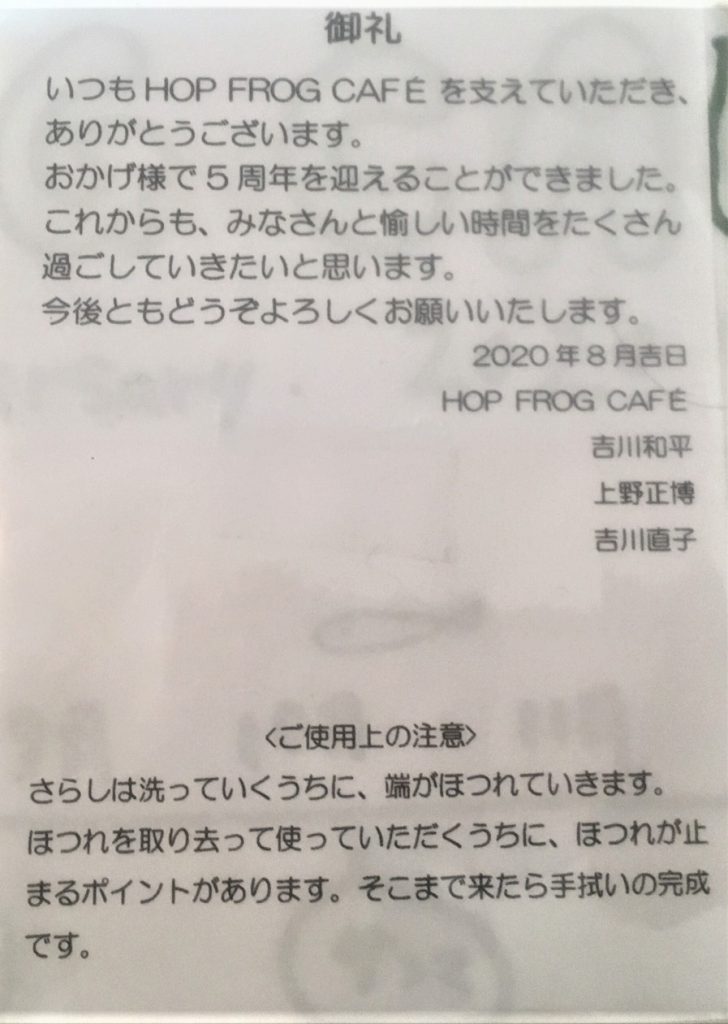 御礼
いつもHOP FROG CAFÉ を支えていただき、
ありがとうございます。
おかげ様で5周年を迎えることができました。
これからも、みなさんと愉しい時間をたくさん
過ごしていきたいと思います。
今後ともどうぞよろしくお願いいたします。
2020年8月吉日
HOP FROG CAFÉ
吉川和平
上野正博
吉川直子
〈ご使用上の注意〉
さらしは洗っていくうちに、端がほつれていきます。
ほつれを取り去って使っていただくうちに、ほつれが止
まるポイントがあります。そこまで来たら手拭いの完成
です。